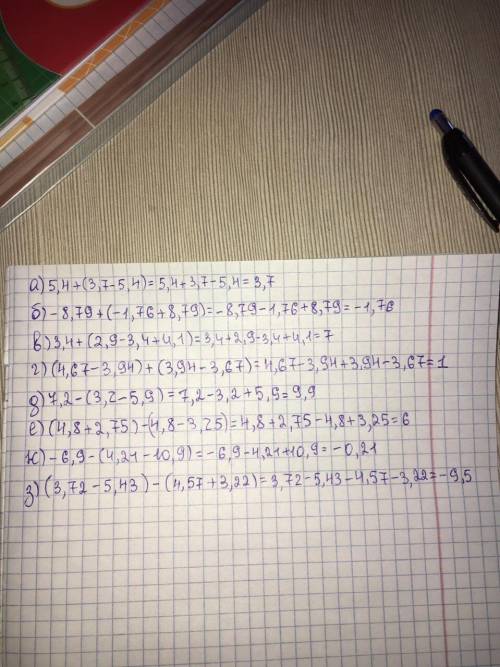 а) 5,4+(3,7-5,4)=5,4+3,7-5,4=3,7
б) -8,79+(-1,76+8,79)=-8,79-1,76+8,79=-1,76
в) 3,4+(2,9-3,4+4,1)=3,4+2,9-3,4+4,1=7
г) (4,67-3,94)+(3,94-3,67)=4,67-3,94+3,94-3,67=1
д) 7,2-(3,2-5,9)=7,2-3,2+5,9=9,9
е) (4,8+2,75)-(4,8-3,25)=4,8+2,75-4,8+3,25=6
ж) -6,9-(4,21-10,9)=-6,9-4,21+10,9=-0,21
з) (3,72-5,43)-(4,57+3,22)=3,72-5,43-4,57-3,22=-9,5